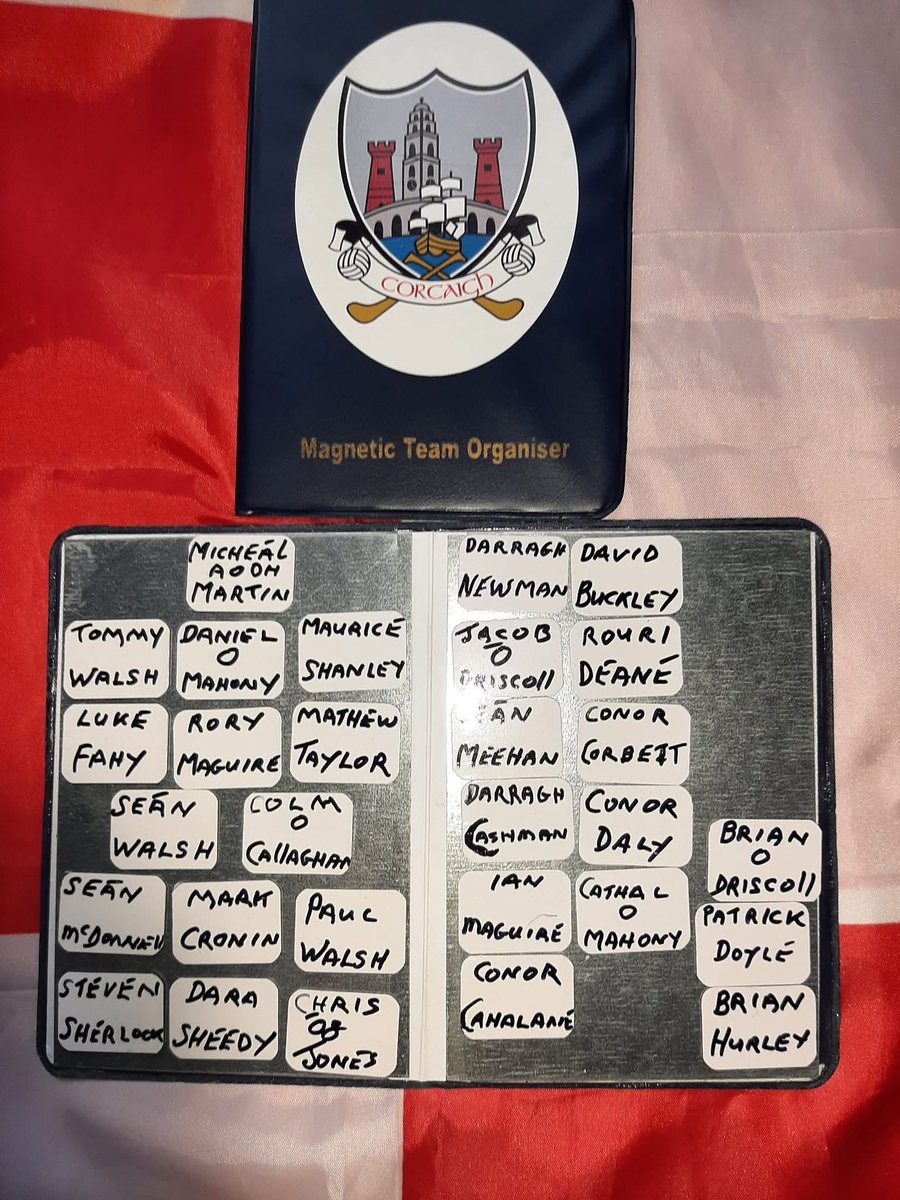 CORCAIGH
Magnetic Team Organiser
MICHEÁL
AODH
MARTIN
TOMMY
WALSH
DANIEL
O
MAHONY
MAURICE
SHANLEY
LUKE
FAHY
RORY
MAGUIRE
MATHEW
TAYLOR
SEÁN
WALSH
COLM
O
CALLAGHAN
SEÁN
McDONNELL
MARK
CRONIN
PAUL
WALSH
STEVEN
SHERLOCK
DARA
SHEEDY
CHRIS
ÓG
JONES
DARRAGH
NEWMAN
DAVID
BUCKLEY
JACOB
O
DRISCOll
ROURI
DEANE
SEÁN
MEEHAN
CONOR
CORBETT
DARRAGH
CASHMAN
CONOR
DALY
IAN
MAGUIRE
CATHAL
O
MAHONY
CONOR
CAHALANE
BRIAN
O
DRISCOll
PATRICK
DOYLE
BRIAN
HURLEY